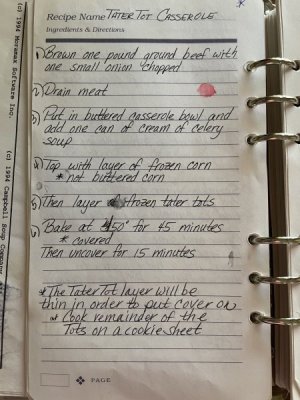 Recipe Name TATER TOT CASSEROLE
Ingredients & Directions
1) Brown one pound ground beef with
one small onion chopped
2) Drain meat
3) Put in buttered casserole bowl and
add one can of cream of celery
soup
4) Top with layer of frozen corn
* not buttered corn
5) Then layer frozen tater tots
6) Bake at 450° for 45 minutes
* covered
Then uncover for 15 minutes
* The Tater Tot layer will be
thin in order to put cover on
* Cook remainder of the
Tots on a cookie sheet
PAGE
(c) 1994 Micromax Software Inc.
(c) 1994 Campbell Soup Company